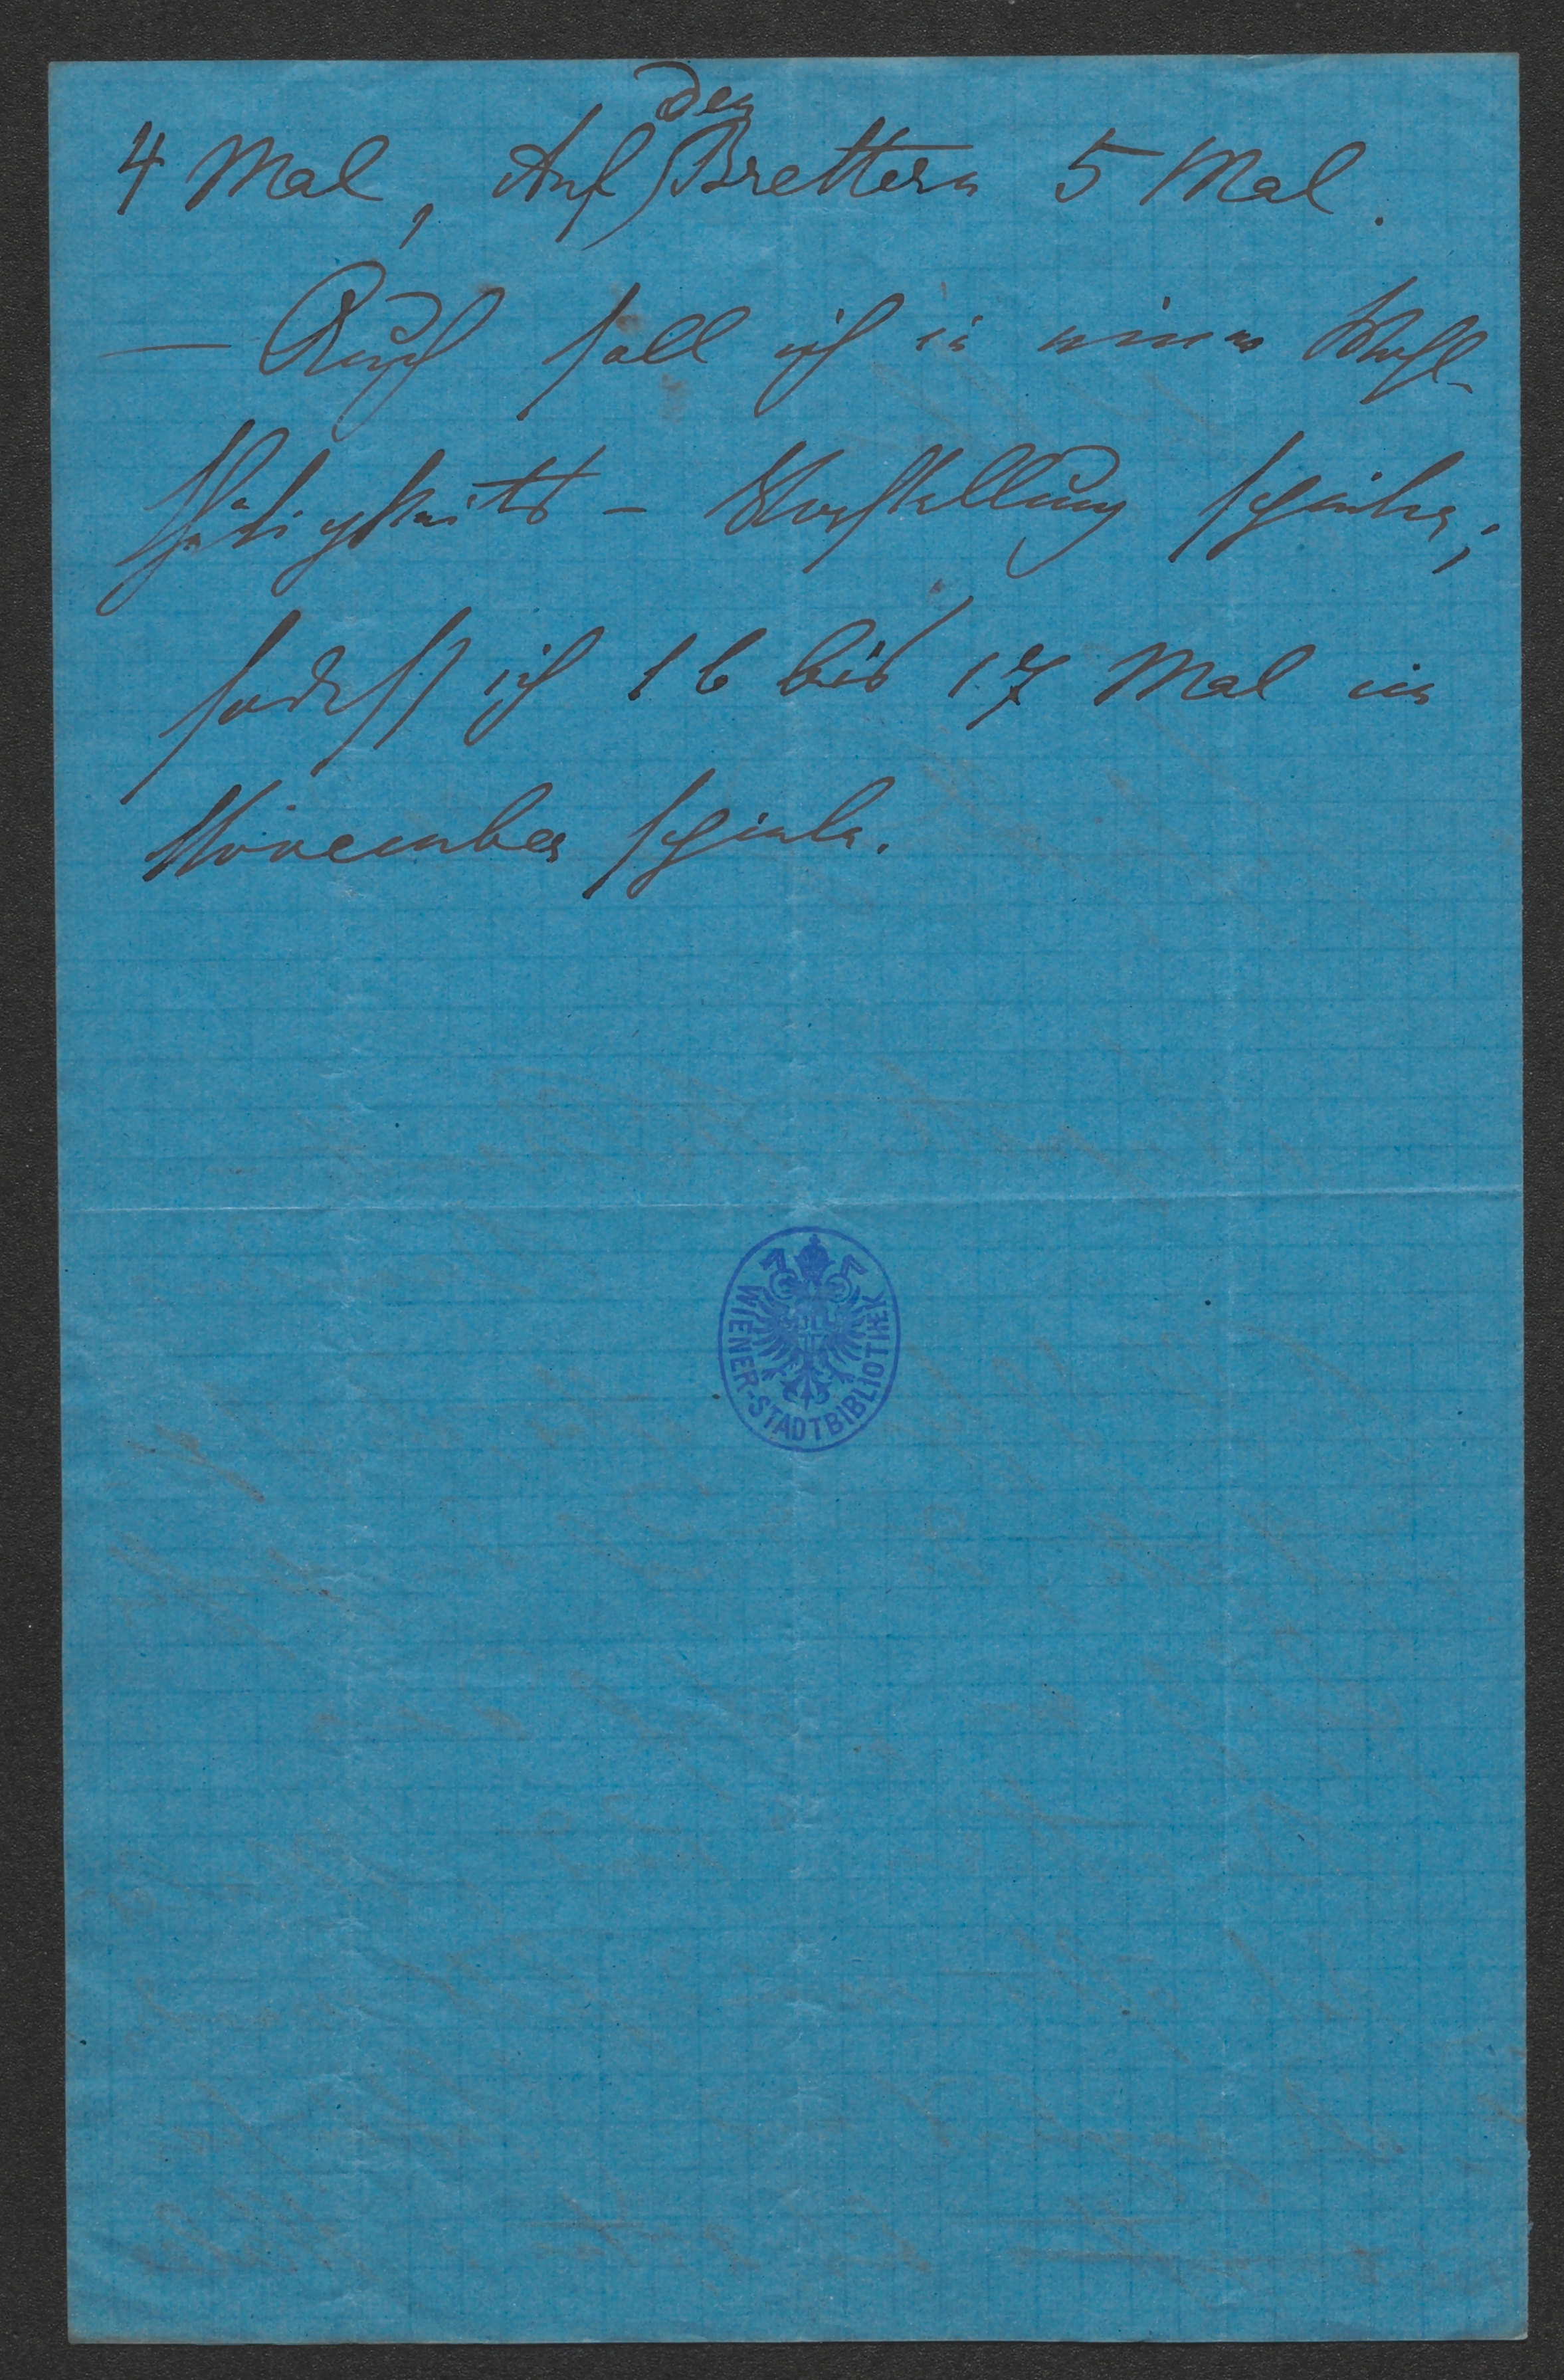 4 Mal, Auf den Brettern 5 Mal.
— Auch soll ich in einer Wohl-
thätigkeits-Vorstellung spielen,
sodaß ich 16 bis 17 Mal im
November spiele.
WIENER-STADTBIBLIOTHEK